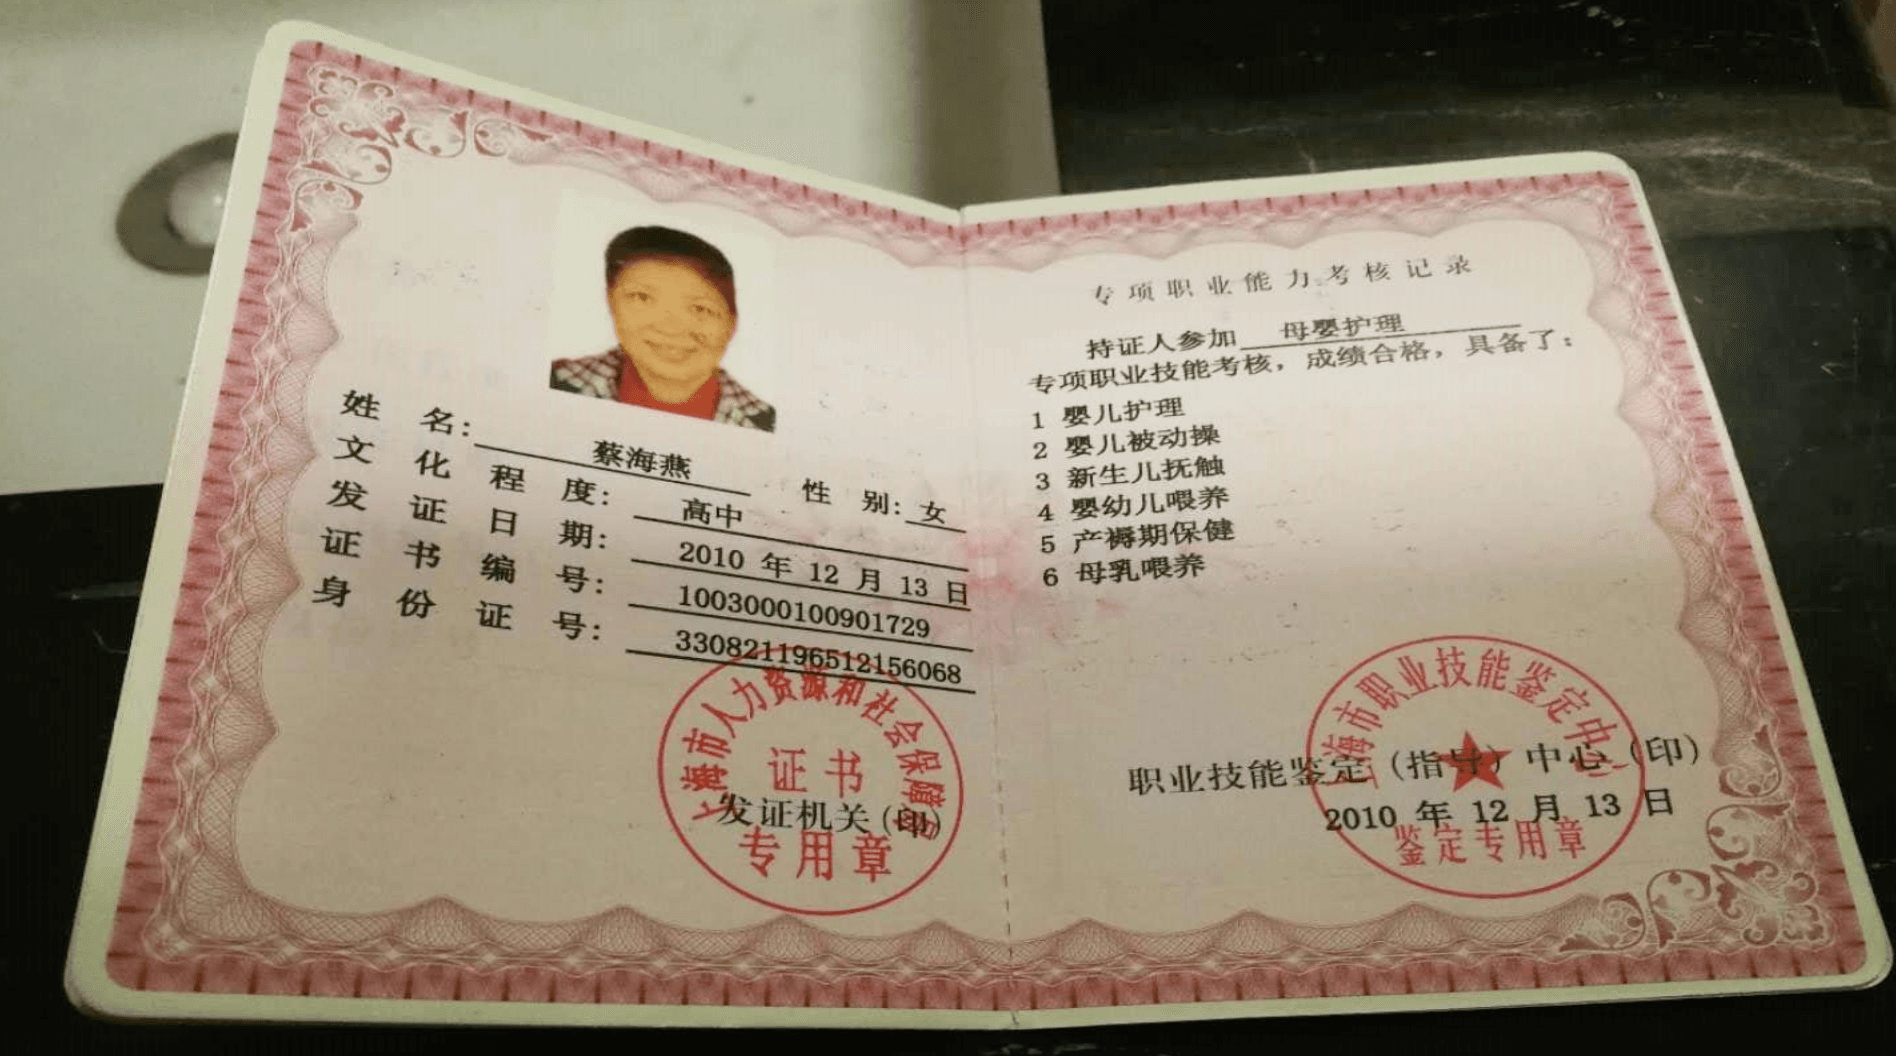 姓名：蔡海燕 性别：女
文化程度：高中
发证日期：2010 年 12 月 13 日
证书编号：1003000100901729
身份证号：330821196512156068
上海市人力资源和社会保障局
证书
发证机关（印）
专用章
专项职业能力考核记录
持证人参加 母婴护理
专项职业技能考核，成绩合格，具备了：
1 婴儿护理
2 婴儿被动操
3 新生儿抚触
4 婴幼儿喂养
5 产褥期保健
6 母乳喂养
上海市职业技能鉴定中心
职业技能鉴定（指导）中心（印）
2010 年 12 月 13 日
鉴定专用章